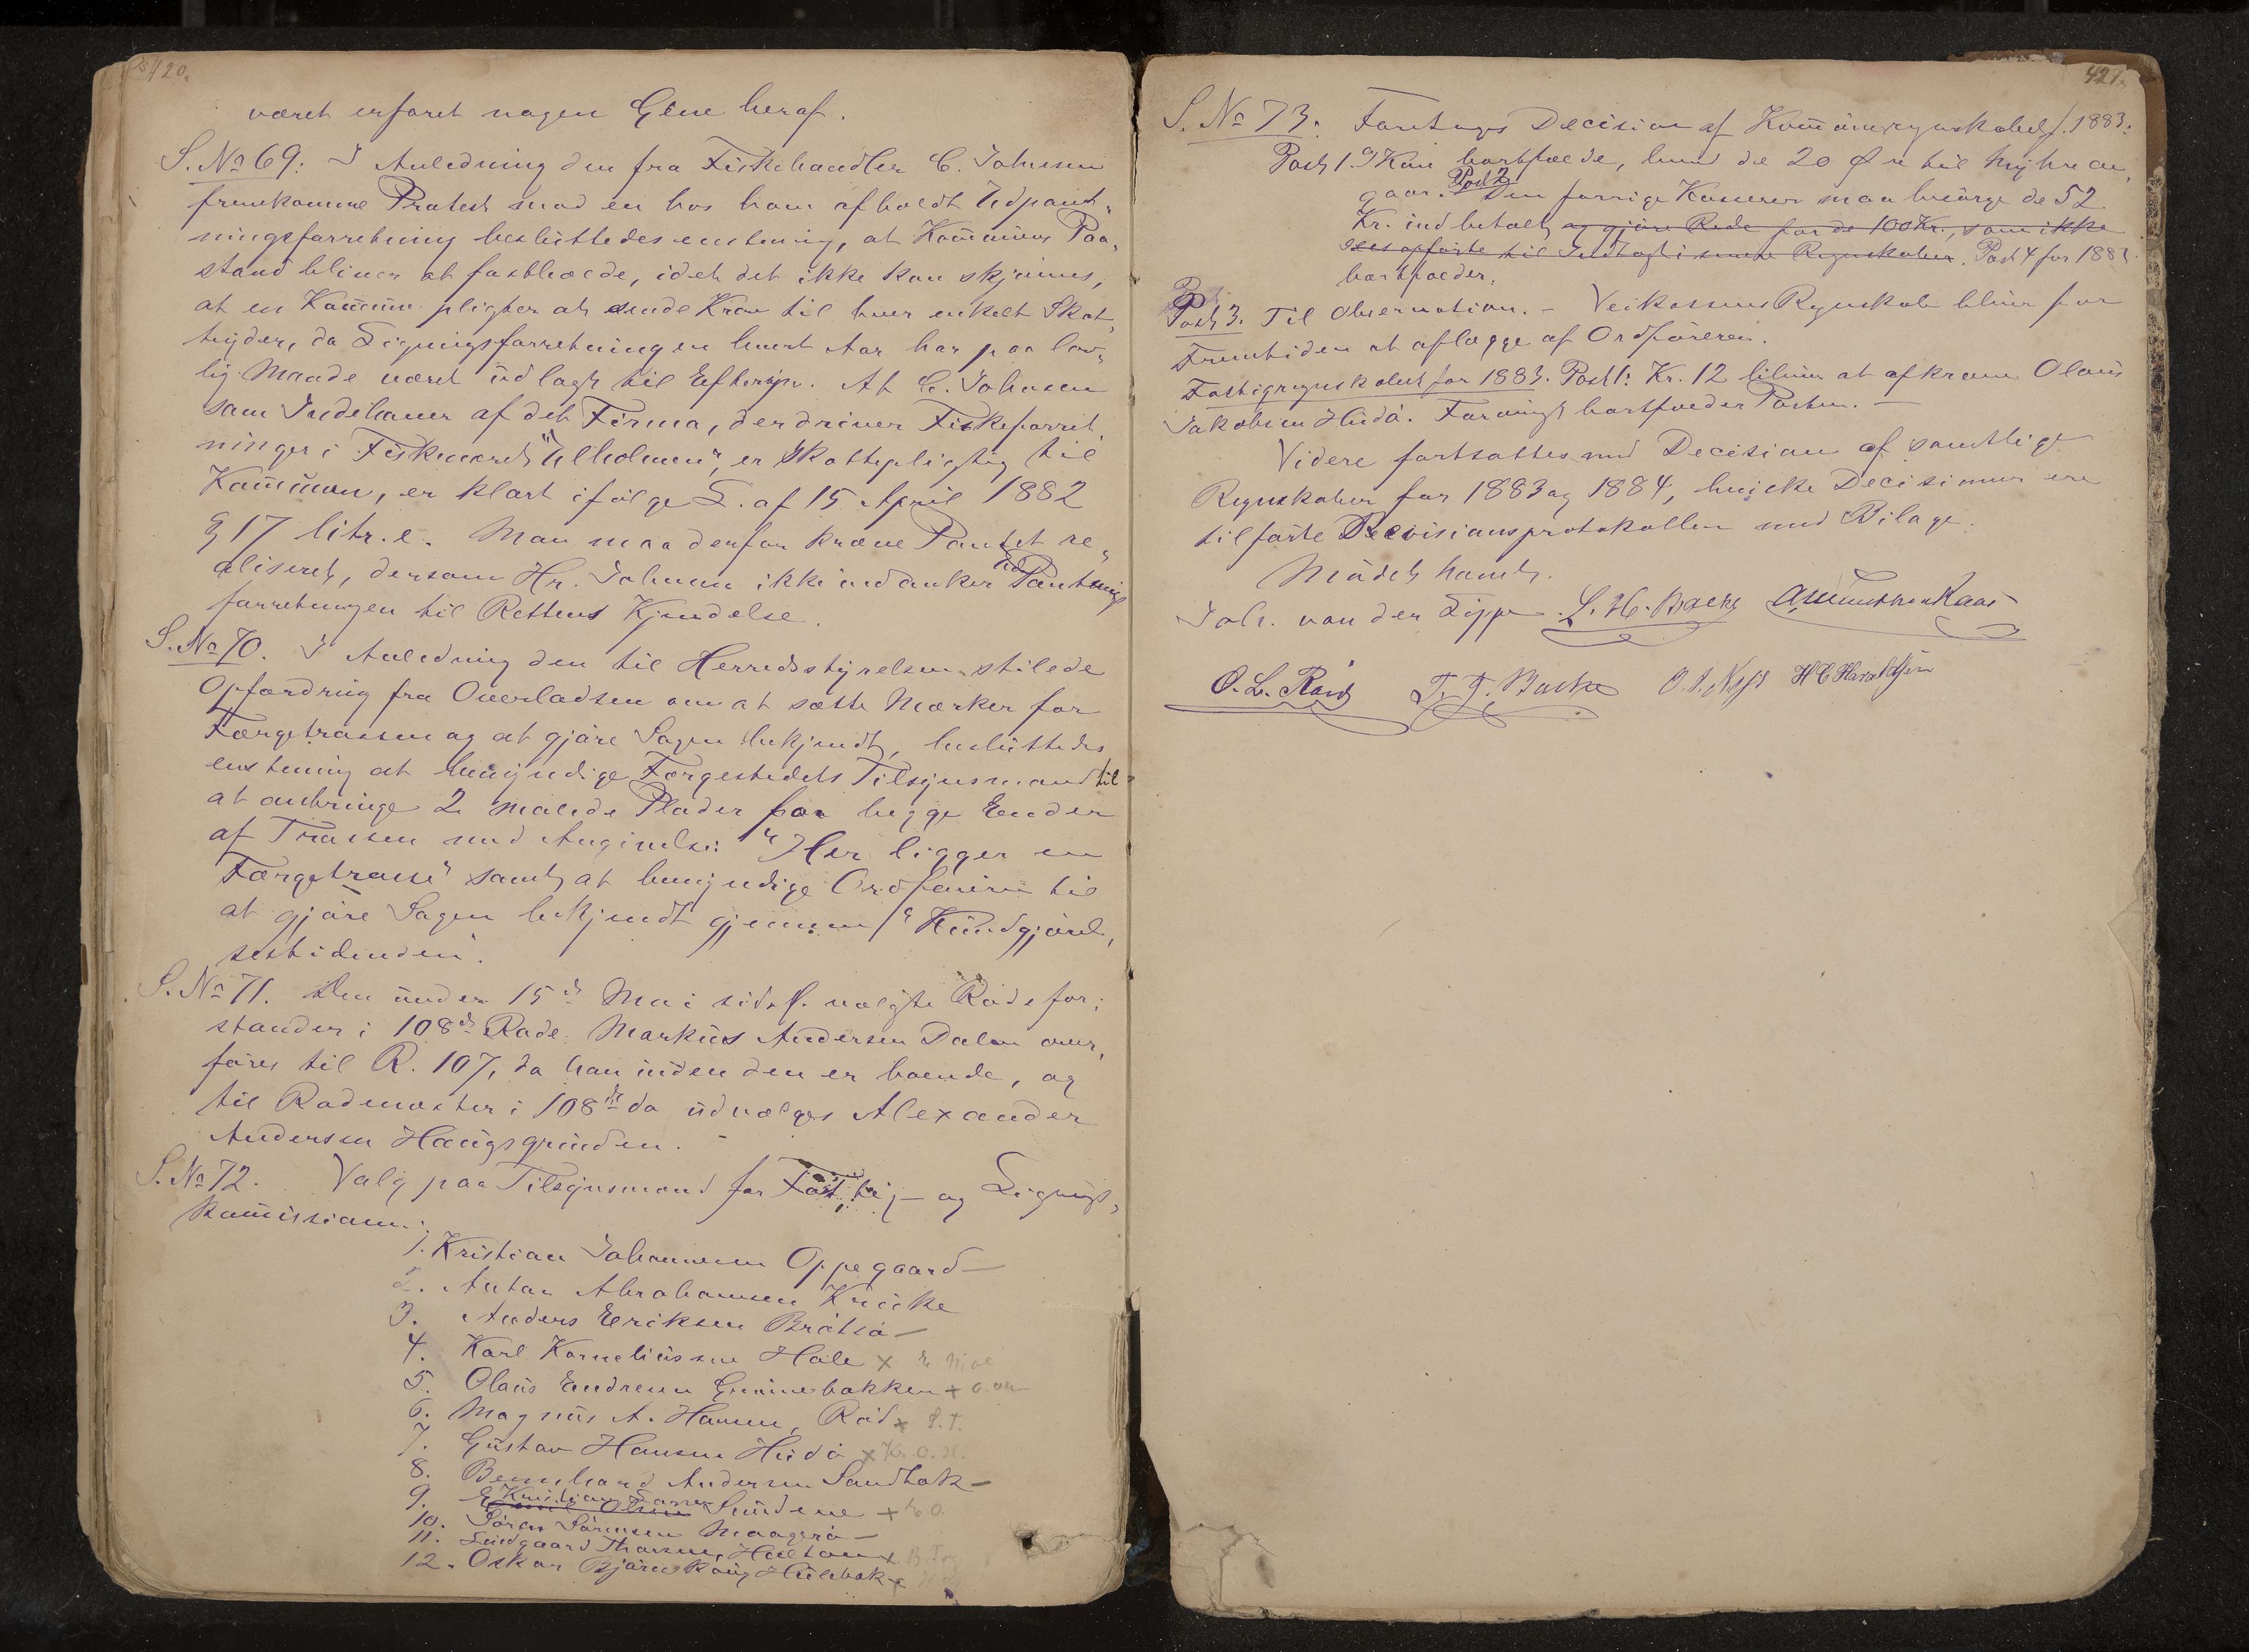 420.
været erfaret nogen Gene heraf.
S. No 69: I Anledning den fra Fiskehandler C. Johnsen
fremkomne Protest mod en hos ham afholdt Udpant-
ningsforretning besluttedes enstemig, at Kommunens Paa-
stand bliver at fastholde, idet det ikke kan skjønnes,
at en Kommune pligter at sende Krav til hver enkelt Skat-
tyder, da Ligningsforretningen hvert Aar har paa lov-
lig Maade været udlagt til Eftersyn. At C. Johnsen
som Indehaver af det Firma, der driver Fiskeforret-
ninger i Fiskeværet "Ulholmen", er skattepligtig til
Kommunen, er klart ifølge L. af 15 April 1882
§ 17 litr. e. Man maa derfor kræve Pantet re-
aliseret, dersom Hr. Johnsen ikke indanker Udpantnings
forretningen til Rettens Kjendelse.
S. No 70. I Anledning den til Herredsstyrelsen stilede
Opfordring fra Overlodsen om at sætte Mærker for
Færgetrossen og at gjøre Sagen bekjendt, besluttedes
enstemig at bemyndige Færgestedets Tilsynsmand til
at anbringe 2 malede Plader paa begge Ender
af Trossen med Angivelse: "Her ligger en
Færgetrosse" samt at bemyndige Ordføreren til
at gjøre Sagen bekjendt gjennem "Kundgjørel-
sestidenden".
S. No 71. Den under 15de Mai sidstl. valgte Rodefor-
stander i 108de Rode Markus Andersen Dalen over-
føres til R. 107, da han inden den er boende, og
til Rodemester i 108de da udvælges Alexander
Andersen Haugsgrinden.
S. No 72. Valg paa Tilsynsmænd for Fattig- og Lignings-
kommissionen:
1. Kristian Johannesen Oppegaard —
2. Anton Abrahamsen Kruke
3. Anders Eriksen Bratsø —
4. Karl Korneliussen Hole x
5. Olaus Andresen Grønnebakken +
6. Magnus A. Hansen, Rød x S.T.
7. Gustav Hansen Hudø x Kr. O. H.
8. Bernhard Andersen Sandbæk —
9. Emil Olsen Kristian Sundene + E O.
10. Søren Sørensen Maagerø —
11. Lindgaard Thorsen, Holtan x
12. Oskar Bjørnskaug Hulebak x
421.
S. No 73. Foretoges Decision af Kommuneregnskabet f. 1883:
Post 1. Kan bortfalde, hvad de 20 Øre til Myhre an-
gaar. Post 2 Den forrige Kasserer maa besørge de 52
Kr. indbetalt og gjøre Rede for de 100 Kr., som ikke
sees opførte til Indtægt i senere Regnskaber. Post 4 for 1883
bortfalder.
Post 3. Til Observation. — Veikassens Regnskab bliver for
Fremtiden at aflægge af Ordføreren.
Fattigregnskabet for 1883. Post 1: Kr. 12 bliver at afkræve Olaus
Jakobsen Hudø. Forøvrigt bortfalder Posten. —
Videre fortsattes med Decision af samtlige
Regnskaber for 1883 og 1884, hvilke Decisioner ere
tilførte Revisionsprotokollen med Bilage.
Mødet hævet.
Joh. von der Lippe L. H. Bache
O. L. Røed T. T. Backe H C Haraldsen